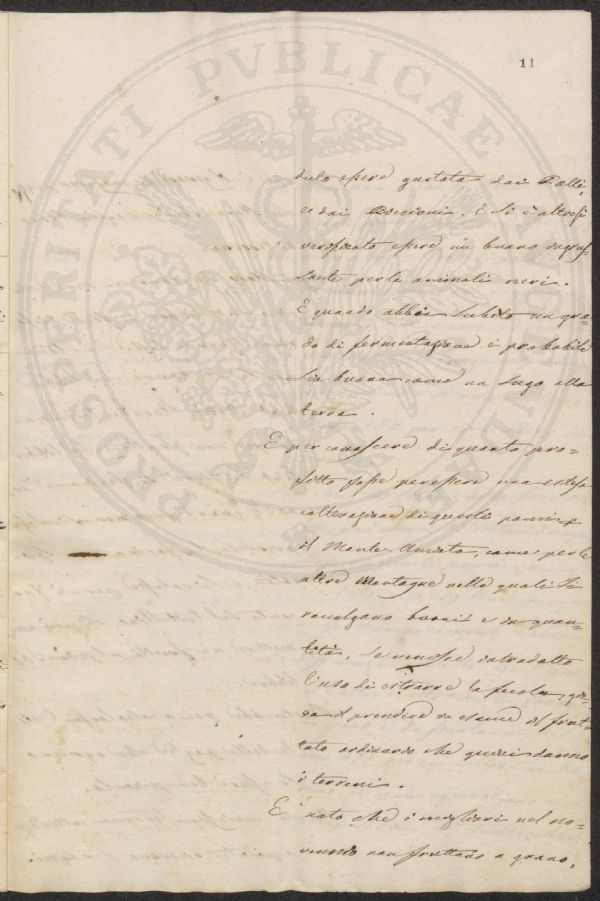 11
dulo essere gustata dai Polli,
e dai Piccioni. E si è altresì
verificato essere un buono ingras-
sante per li animali neri.
E quando abbia subito un gra-
do di fermentazione è probabile
sia buona come un sugo alla
terra.
E per conoscere di quanto pro-
fitto fosse per essere una estesa
coltivazione di questi pomi
il Monte-Amiata, come per le
altre Montagne nelle quali si
raccolgano buoni e in quan-
tità, se venisse introdotto
l'uso di estrarre la fecola,
il prendere in esame il frut-
tato ordinario che questi danno
i terreni.
E' noto che i migliori nel
non fruttano a grano,
PROSPERITATI PVBLICAE